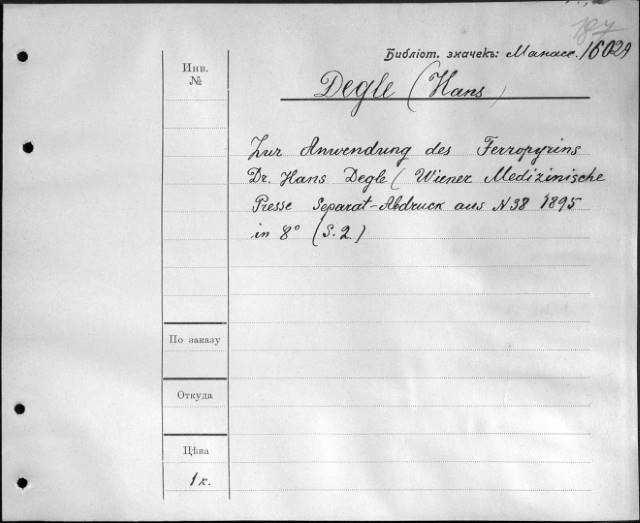 187
Библіот. значекъ: Манасс. 16029
Инв.
№
Degle (Hans)
Zur Anwendung des Ferropyrins
Dr. Hans Degle (Wiener Medizinische
Presse Separat-Abdruck aus N 38 1895
in 8° (S. 2.)
По заказу
Откуда
Цѣна
1 к.